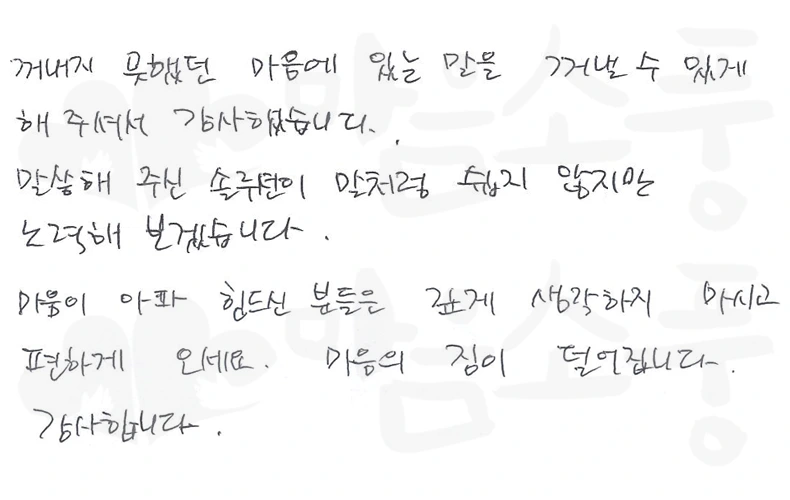 꺼내지 못했던 마음에 있는 말을 꺼낼 수 있게
해 주셔서 감사했습니다.
말씀해 주신 솔루션이 말처럼 쉽지 않지만
노력해 보겠습니다.
마음이 아파 힘드신 분들은 깊게 생각하지 마시고
편하게 오세요. 마음의 짐이 덜어집니다.
감사합니다.
맘음소풍
맘음소풍